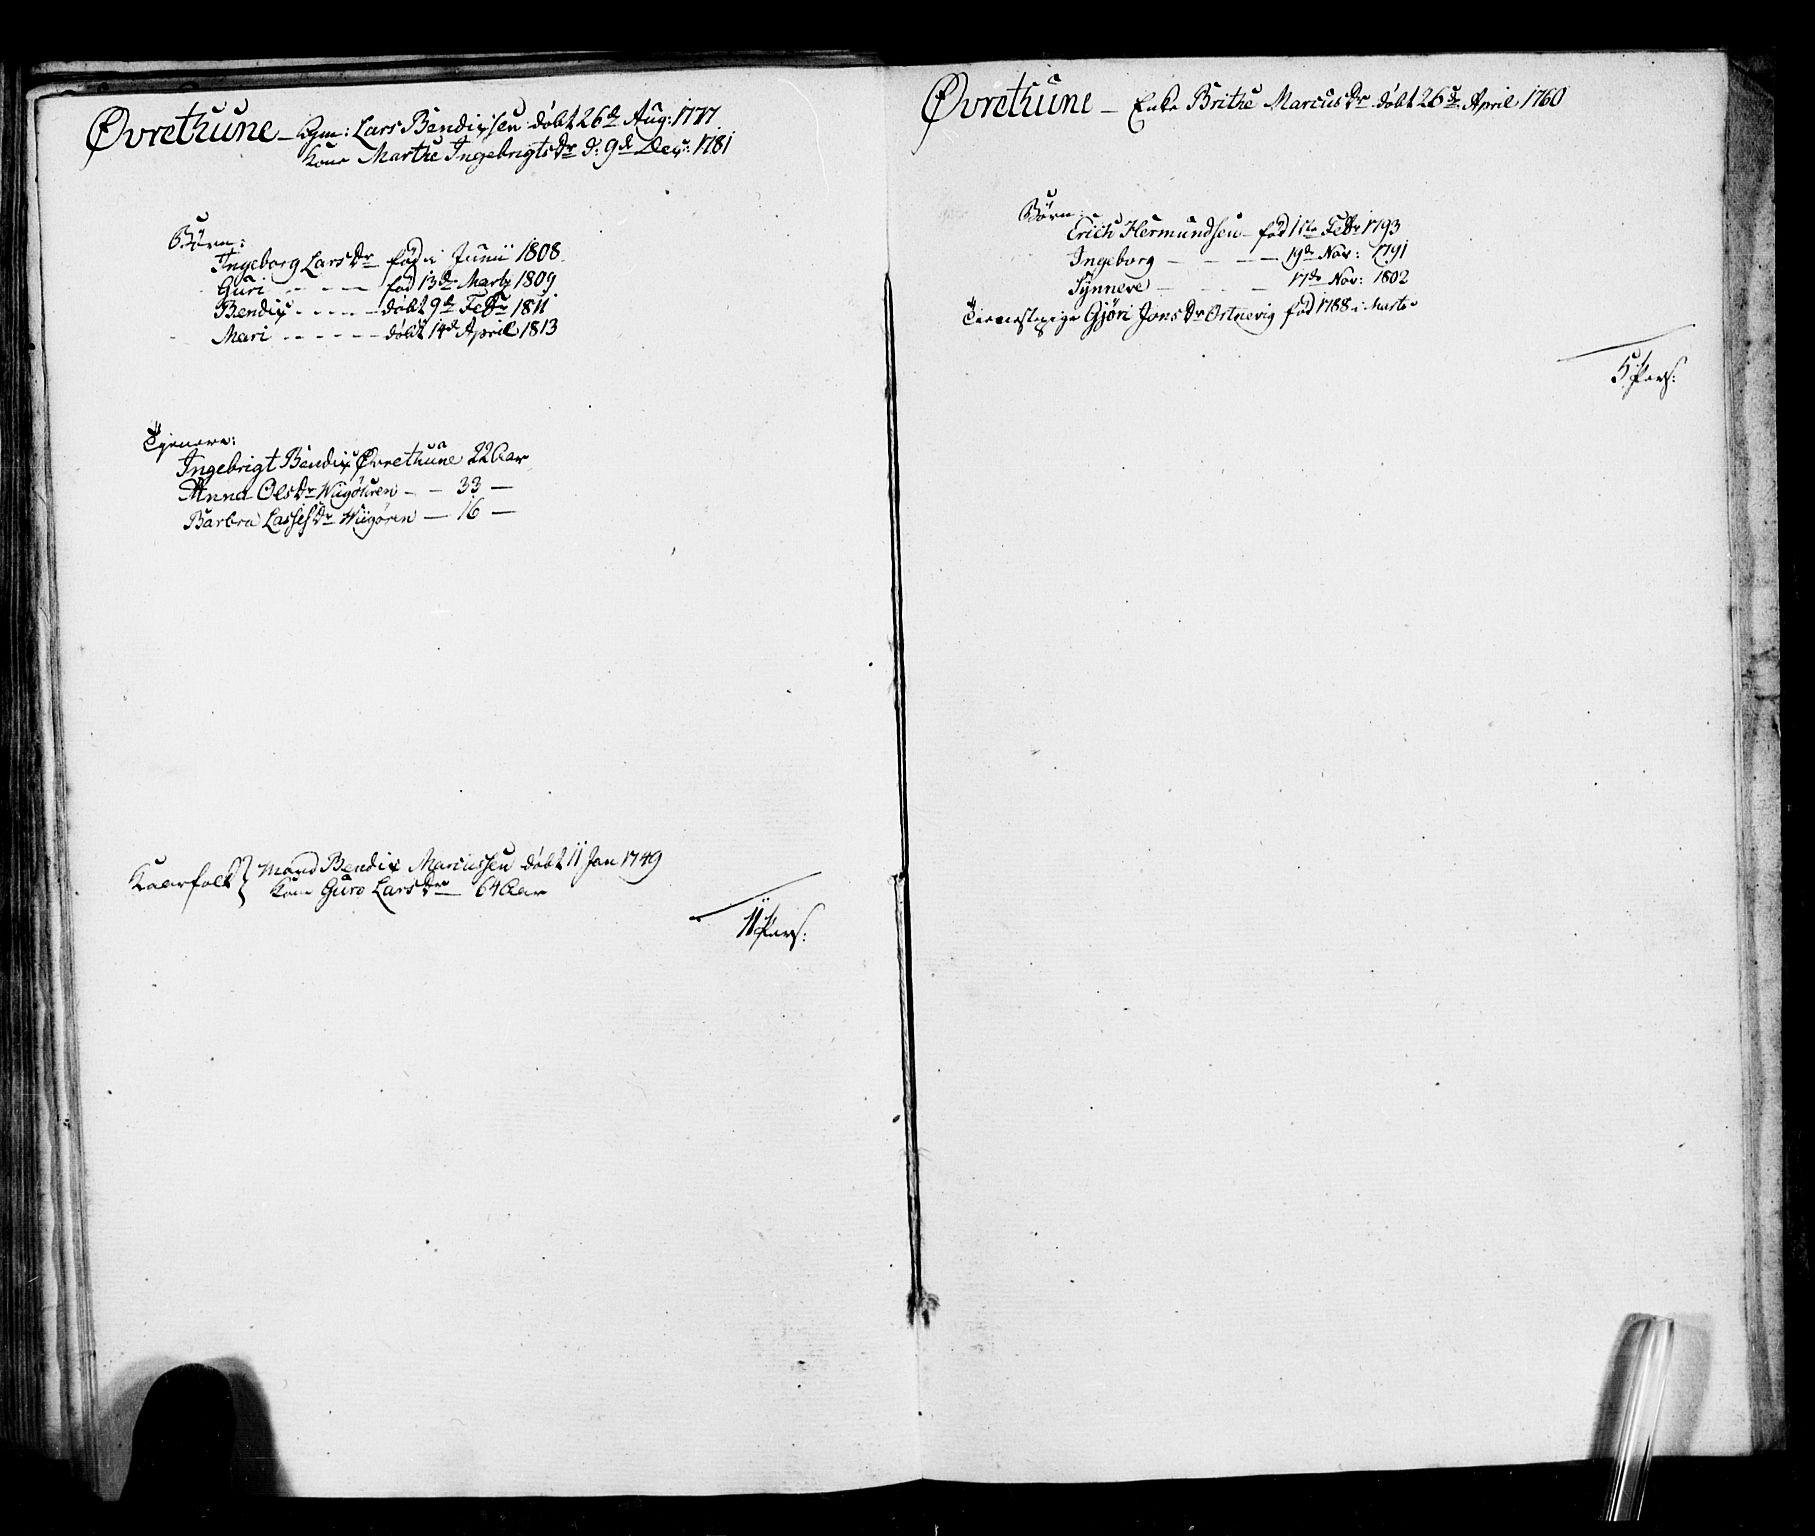 Øvrethune – Lars Bendixsen døbt 26de Aug: 1777
Kone Marthe Ingebrigtsdr d: 9de Decr: 1781
Børn:
Ingeborg Larsdr fød i Junii 1808
Guri – – – – fød 13de Marts 1809
Bendix – – – – – døbt 9de Febr 1811
Mari – – – – – døbt 14de April 1813
Tjenere:
Ingebrigt Bendix Øvrethune 22 Aar
Anna Olsdr Wiigøren – – 33 –
Barbra Lassesdr Wiigøren – 16 –
Kaarfolk } Mand Bendix Marcussen døbt 11 Jan 1749
Kone Guro Larsdr – 64 Aar
11 Pers:
Øvrethune – Enke Brithe Marcusdr døbt 26de April 1760
Børn:
Erich Hermundsen – fød Febr 1793
Ingeborg – – – – – 19de Nov: 1791
Synneve – – – – 17de Nov: 1802
Tienestepige Gjøri Jonsdr Ortnevig fød 1788 i Marts
5 Pers: